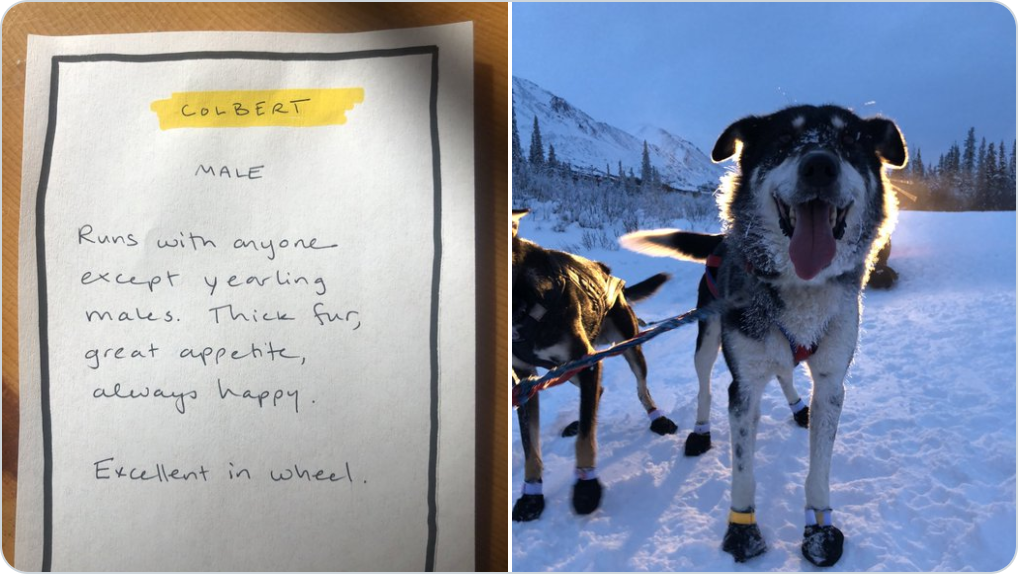 COLBERT
MALE
Runs with anyone
except yearling
males. Thick fur,
great appetite,
always happy.
Excellent in wheel.